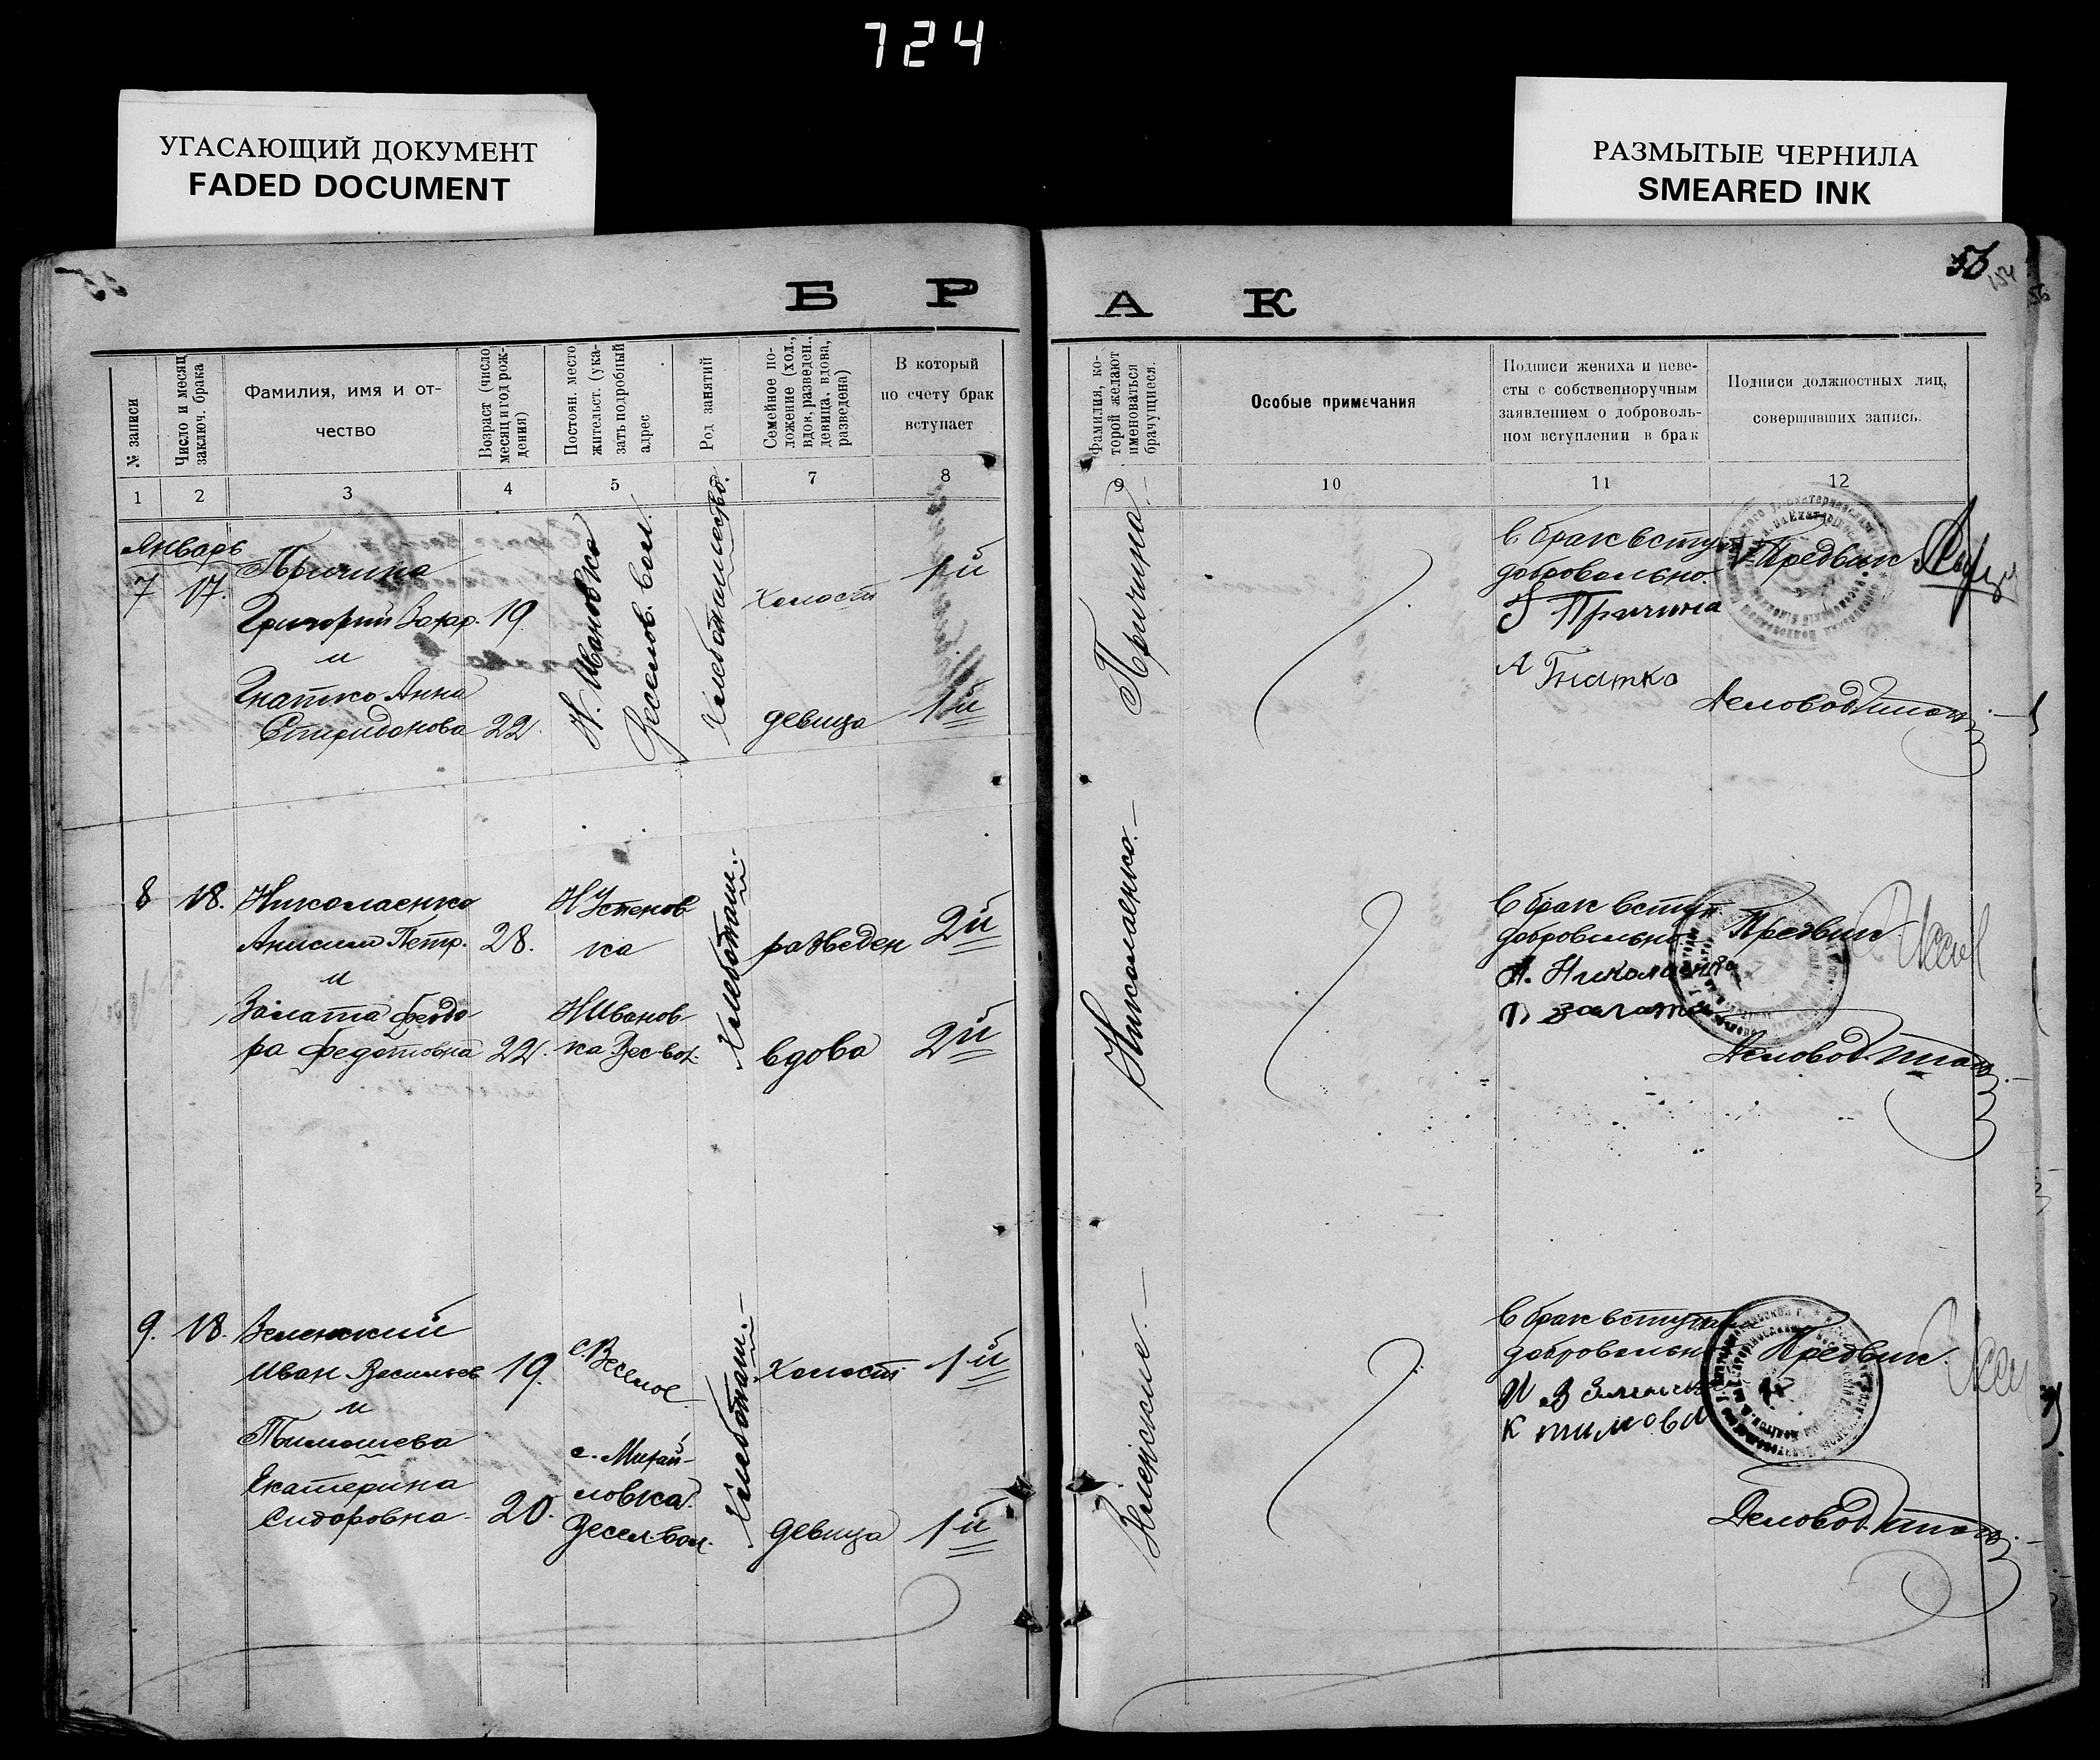 724
УГАСАЮЩИЙ ДОКУМЕНТ
FADED DOCUMENT
РАЗМЫТЫЕ ЧЕРНИЛА
SMEARED INK
56
154
Б Р А К
№ записи
Число и месяц
заключ. брака
Фамилия, имя и от-
чество
Возраст (число
месяц и год рож-
дения)
Постоян. место
жительст. (ука-
зать подробный
адрес
Род занятий
Семейное по-
ложение (хол.,
вдов, разведен.,
девица, вдова,
разведена)
В который
по счету брак
вступает
Фамилия, ко-
торой желают
именоваться
брачущиеся.
Особые примечания
Подписи жениха и неве-
сты с собственноручным
заявлением о доброволь-
ном вступлении в брак
Подписи должностных лиц,
совершивших запись.
1 2 3 4 5 7 8 9 10 11 12
Январь
7 17.
Причина
Григорий Захар. 19
и
Гнатко Анна
Спиридонова 22.
Н. Ивановка
Веселов. вол.
Хлебопашество.
Холост 1й
девица 1й
Причина.
В брак вступ
добровольно.
Г Причина
А Гнатко
Предвик
Деловод
8 18. Николаенко
Анисим Петр. 28.
и
Залата Феодо-
ра Федотовна 22.
Н Успенов
ка
Н Иванов-
ка Вес. вол.
Хлебопаш.
разведен 2й
вдова 2й
Николаенко.
В брак вступ
добровольно
А. Николаенко
залата
Предвик
Деловод.
9. 18. Зеленский
Иван Васильев 19.
и
Тимошева
Екатерина
Сидоровна 20.
с. Веселое
с. Михай-
ловка
Весел. вол.
Хлебопаш.
Холост 1й
девица 1й
Зеленские.
В брак вступаем
добровольно
И З
К тимова
Предвик.
Деловод.